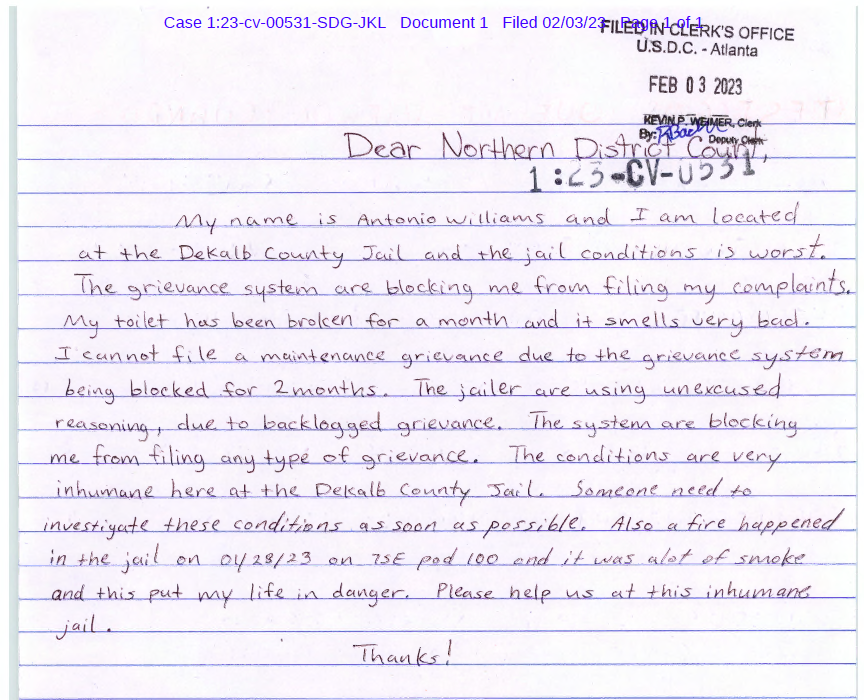 Case 1:23-cv-00531-SDG-JKL Document 1 Filed 02/03/23 Page 1 of 1
FILED IN CLERK'S OFFICE
U.S.D.C. - Atlanta
FEB 03 2023
KEVIN P. WEIMER, Clerk
By:
Deputy Clerk
Dear Northern District Court,
1:23-CV-0531
My name is Antonio Williams and I am located
at the Dekalb County Jail and the jail conditions is worst.
The grievance system are blocking me from filing my complaints.
My toilet has been broken for a month and it smells very bad.
I cannot file a maintenance grievance due to the grievance system
being blocked for 2 months. The jailer are using unexcused
reasoning, due to backlogged grievance. The system are blocking
me from filing any type of grievance. The conditions are very
inhumane here at the Dekalb County Jail. Someone need to
investigate these conditions as soon as possible. Also a fire happened
in the jail on 01/28/23 on 7SE pod 100 and it was alot of smoke
and this put my life in danger. Please help us at this inhumane
jail.
Thanks!